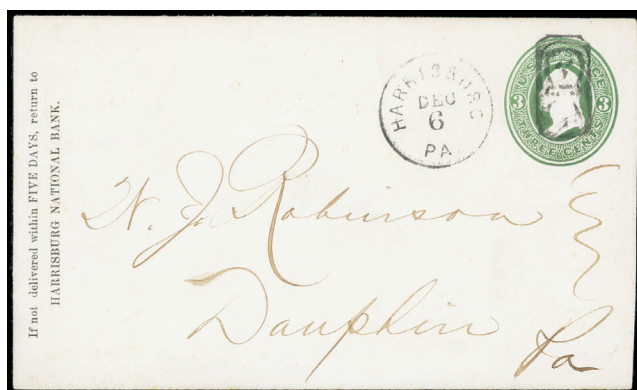 If not delivered within FIVE DAYS, return to
HARRISBURG NATIONAL BANK.
HARRISBURG
DEC
6
PA.
U.S. POSTAGE
3 3
THREE CENTS
W. J. Robinson
Dauphin
Pa